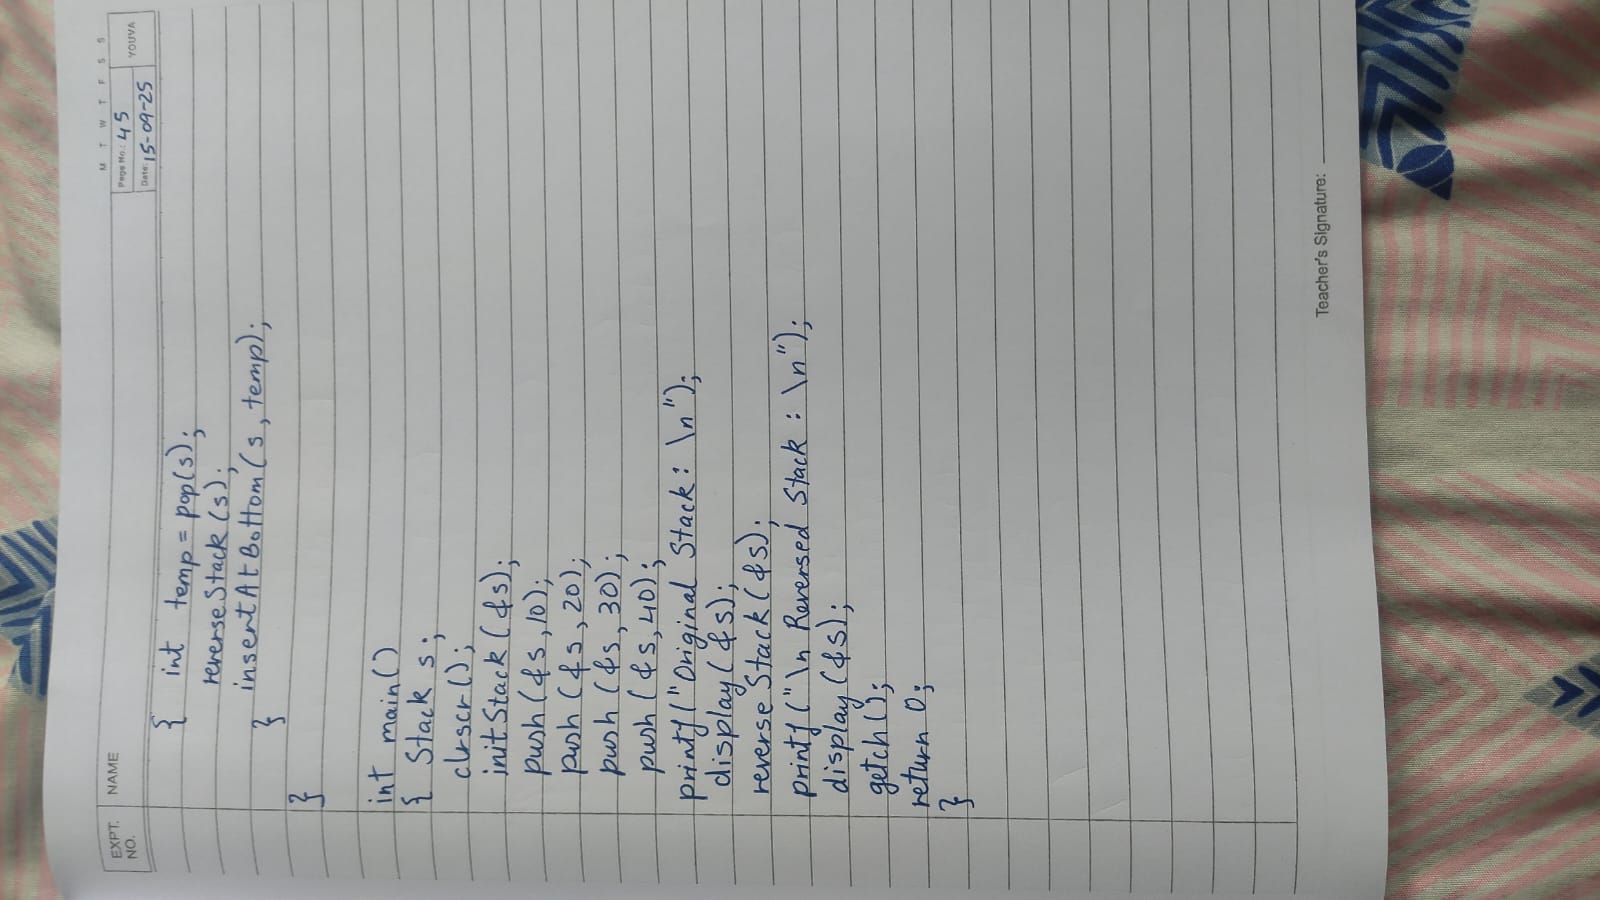 M T W T F S S
EXPT. NO.
NAME
Page No.: 45
Date: 15-09-25
YOUVA
{ int temp = pop(s);
reverseStack (s);
insertAtBottom(s, temp);
}
}
int main()
{ Stack s;
clrscr();
initStack (&s);
push (&s,10);
push (&s,20);
push (&s, 30);
push (&s,40);
printf("Original Stack: \n");
display(&s);
reverse Stack (&s);
printf ("\n Reversed Stack : \n");
display (&s);
getch();
return 0;
}
Teacher's Signature: